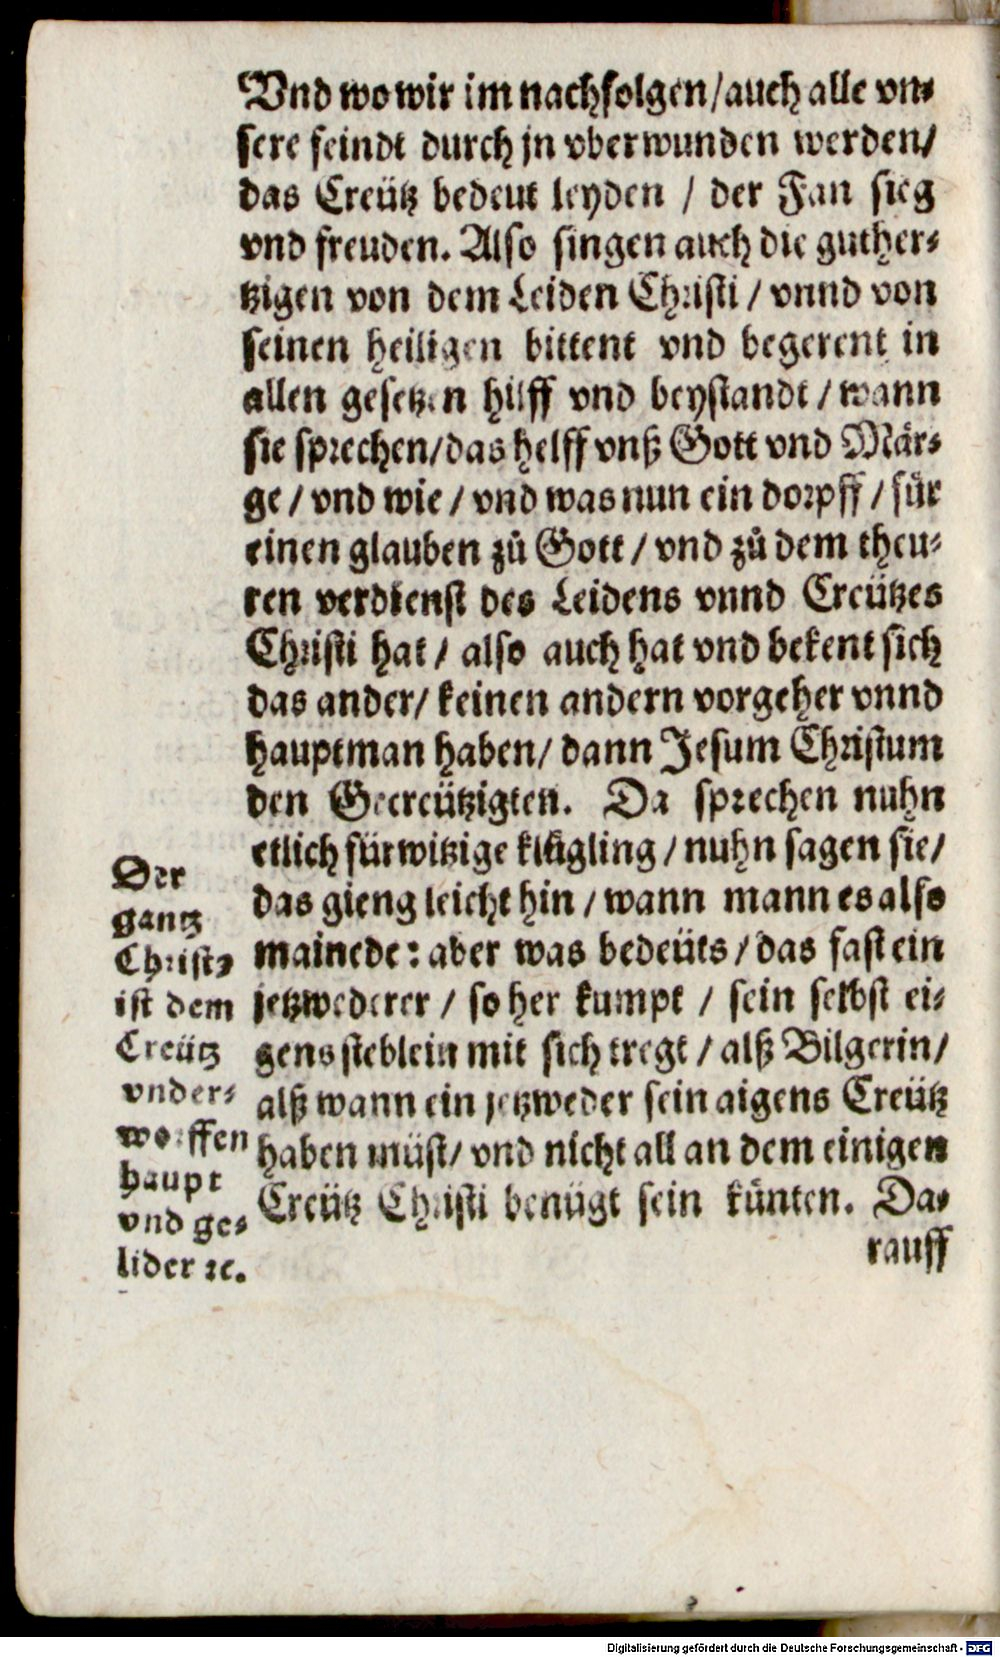 Vnd wo wir im nachfolgen/auch alle vn⸗
sere feindt durch jn vberwunden werden/
das Creütz bedeut leyden / der Fan sieg
vnd freuden. Also singen auch die guther⸗
tzigen von dem Leiden Christi / vnnd von
seinen heiligen bittent vnd begerent in
allen gesetzen hilff vnd beystandt / wann
sie sprechen/das helff vnß Gott vnd Mär⸗
ge / vnd wie / vnd was nun ein dorpff / für
einen glauben zů Gott / vnd zů dem theu⸗
ren verdienst des Leidens vnnd Creützes
Christi hat / also auch hat vnd bekent sich
das ander/ keinen andern vorgeher vnnd
hauptman haben/ dann Jesum Christum
den Gecreützigten. Da sprechen nuhn
etlich fürwitzige klügling / nuhn sagen sie/
das gieng leicht hin / wann mann es also
mainede: aber was bedeüts / das fast ein
jetzwederer / so her kumpt / sein selbst ei⸗
gens steblein mit sich tregt / alß Bilgerin/
alß wann ein jetzweder sein aigens Creütz
haben müst/ vnd nicht all an dem einigen
Creütz Christi benügt sein künten. Da⸗
rauff
Der
gantz
Christ⸗
ist dem
Creütz
vnder⸗
worffen
haupt
vnd ge⸗
lider ꝛc.
Digitalisierung gefördert durch die Deutsche Forschungsgemeinschaft - DFG